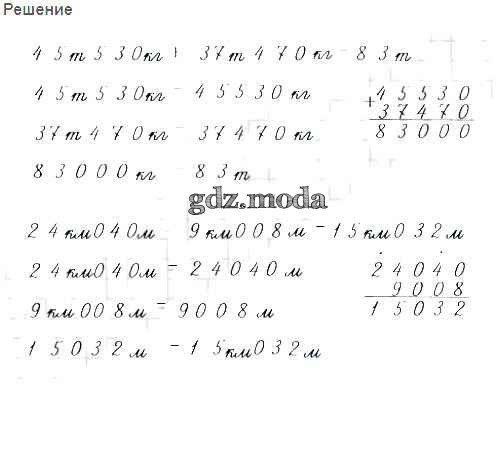 Решение
45т530кг + 37т470кг - 83т
45т530кг - 45530кг
37т470кг - 37470кг
83000кг - 83т
+45530
37470
83000
gdz.moda
24км040м - 9км008м = 15км032м
24км040м = 24040м
9км008м = 9008м
15032м - 15км032м
24040
9008
15032